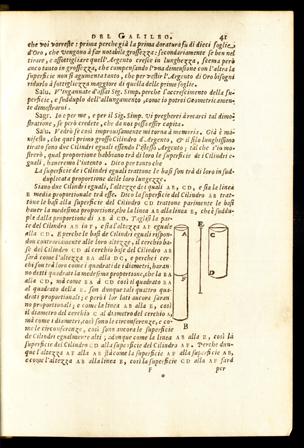 DEL GALILEO. 41
che voi vorreste: prima perche già la prima doratura fu di dieci foglie
d'Oro, che vengono à far notabile grossezza: secondariamente se ben nel
tirare, e assottigliare quell'Argento cresce in lunghezza, scema però
anco tanto in grossezza, che compensando l'vna dimensione con l'altra la
superficie non si agumenta tanto, che per vestir l'Argento di Oro bisogni
ridurlo à sottigliezza maggiore di quella delle prime foglie.
Salu. V'ingannate d'assai Sig. Simp. perche l'accrescimento della su-
perficie, è sudduplo dell'allungamento, come io potrei Geometricamen-
te dimostrarui.
Sagr. Io e per me, e per il Sig. Simp. Vi pregherei à recarci tal dimo-
strazione, se però credete, che da noi possa esser capita.
Salu. Vedrò se così improuisamente mi torna à memoria. Già è ma-
nifesto, che quel primo grosso Cilindro d'Argento, & il filo lunghissimo
tirato sono due Cilindri eguali essendo l'istesso Argento; tal che s'io mo-
strerò, qual proporzione habbiano trà di loro le superficie de i Cilindri e-
guali, haueremo l'intento. Dico per tanto che
La superficie de i Cilindri eguali trattone le basi son trà di loro in sud-
duplicata proporzione delle loro lunghezze.
Siano due Cilindri eguali, l'altezze de i quali AB, CD, e sia la linea
E media proporzionale trà esse. Dico la superficie del Cilindro AB trat-
tone le basi alla superficie del Cilindro CD trattone parimente le basi
hauer la medesima proporzione, che la linea AB alla linea E, che è suddu-
pla della proporzione di AB à CD. Taglisi la par-
te del Cilindro AB in F, e sia l'altezza AF eguale
alla CD. E perche le basi de Cilindri eguali rispon-
don contrariamente alle loro altezze, il cerchio ba-
se del Cilindro CD al cerchio base del Cilindro AB
sarà come l'altezza BA alla DC, e perche i cer-
chi son trà loro come i quadrati de i diametri, haran-
no detti quadrati la medesima proporzione, che la BA
alla CD, mà come BA à CD così il quadrato BA
al quadrato della E. son dunque tali quattro qua-
drati proporzionali; e però i lor lati ancora saran-
no proporzionali; e come la linea AB alla E, così
il diametro del cerchio C al diametro del cerchio A.
mà come i diametri, così sono le circonferenze, e co-
me le circonferenze, così sono ancora le superficie
de Cilindri egualmente alti; adunque come la linea AB alla E, così la
superficie del Cilindro CD alla superficie del Cilindro AF. Perche dun-
que l'altezza AF alla AB stà come la superficie AF alla superficie AB,
e come l'altezza AB alla linea E, così la superficie CD alla AF sarà
F per
A
F
B
E
C
D